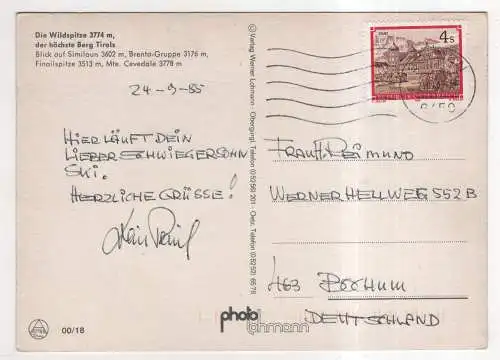 Die Wildspitze 3774 m,
der höchste Berg Tirols
Blick auf Similaun 3602 m, Brenta-Gruppe 3176 m,
Finailspitze 3513 m, Mte. Cevedale 3778 m
24-9-85
HIER LÄUFT DEIN
LIEBER SCHWIEGERSOHN
SKI.
HERZLICHE GRÜSSE!
00/18
© Verlag Werner Lohmann - Obergurgl, Telefon (05256) 201 - Oetz, Telefon (05252) 6576
photo
lohmann
4s
STAMS
FRAU H. REIMUND
WERNER HELLWEG 552 B
463 BOCHUM
DEUTSCHLAND